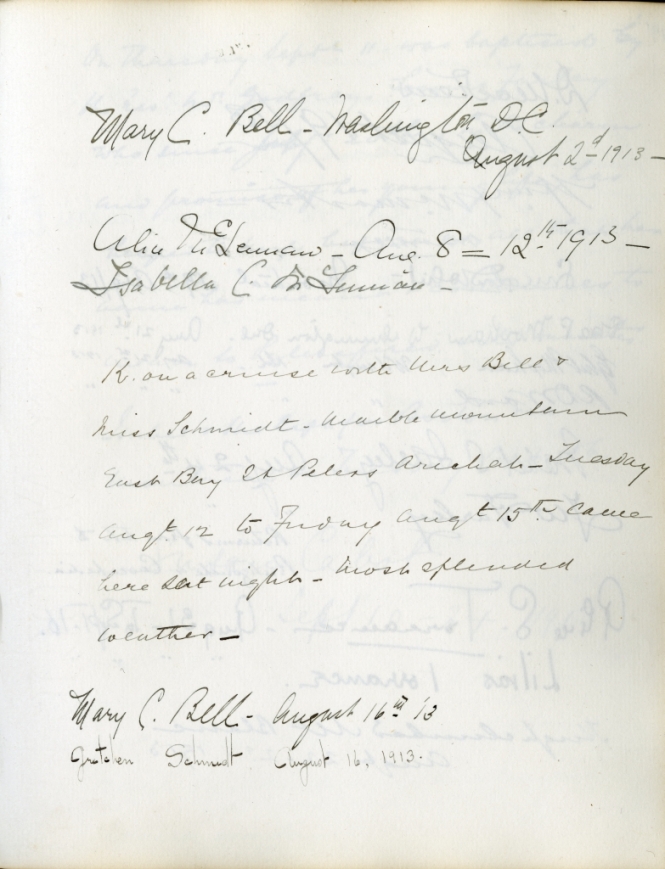 Mary C. Bell - Washington D.C.
August 2d 1913 -
Alice McLennan - Aug. 8 = 12th 1913 -
Isabella C. McLennan -
K. on a cruise with Mrs Bell &
Miss Schmidt - Marble mountain
East Bay St Peters Arichat - Tuesday
Augt. 12 to Friday Augt 15th Came
here Sat night - Most splended
weather -
Mary C. Bell - August 16th '13
Gretchen Schmidt August 16, 1913.